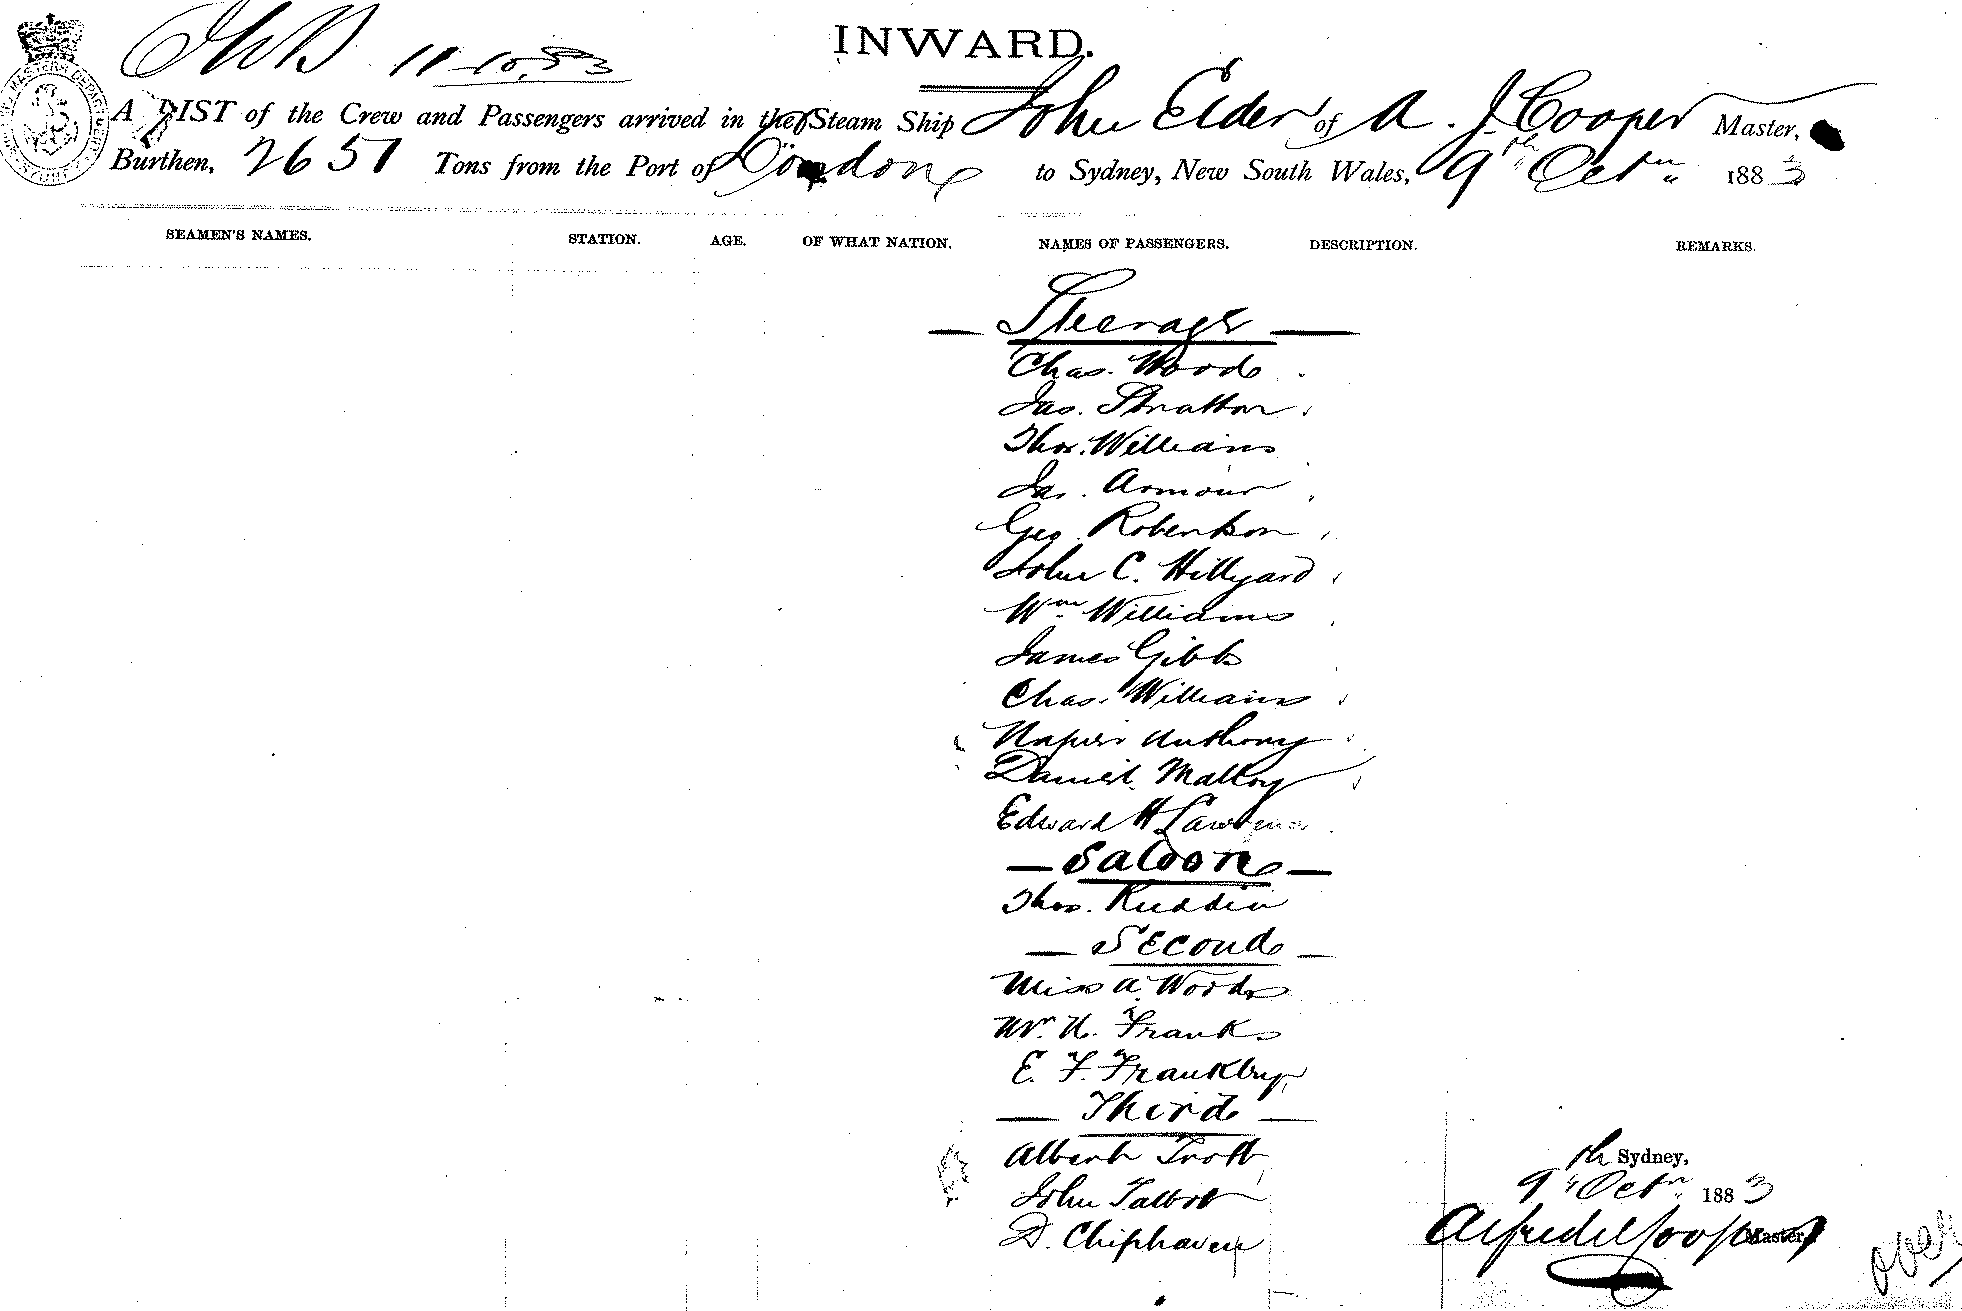 11-10.83
INWARD.
A LIST of the Crew and Passengers arrived in the Steam Ship John Elder of A. J. Cooper Master,
Burthen, 2651 Tons from the Port of London to Sydney, New South Wales, 9th Octr 1883
SEAMEN'S NAMES. STATION. AGE. OF WHAT NATION. NAMES OF PASSENGERS. DESCRIPTION. REMARKS.
— Steerage —
Chas. Woods
Jas. Stratton
Thos. Williams
Jas. Armour
Geo Robertson
John C. Hillyard
Wm Williams
James Gibbs
Chas. Williams
Napier Anthony
Daniel Malloy
Edward H Lawrence
— Saloon —
Thos. Ruddin
— Second —
Miss A. Woods
Mr. Franks
E. F.
— Third —
Albert Trott
John Talbot
D. Chiphaven
Sydney,
9th Octr 1883
Alfred J Cooper Master
over